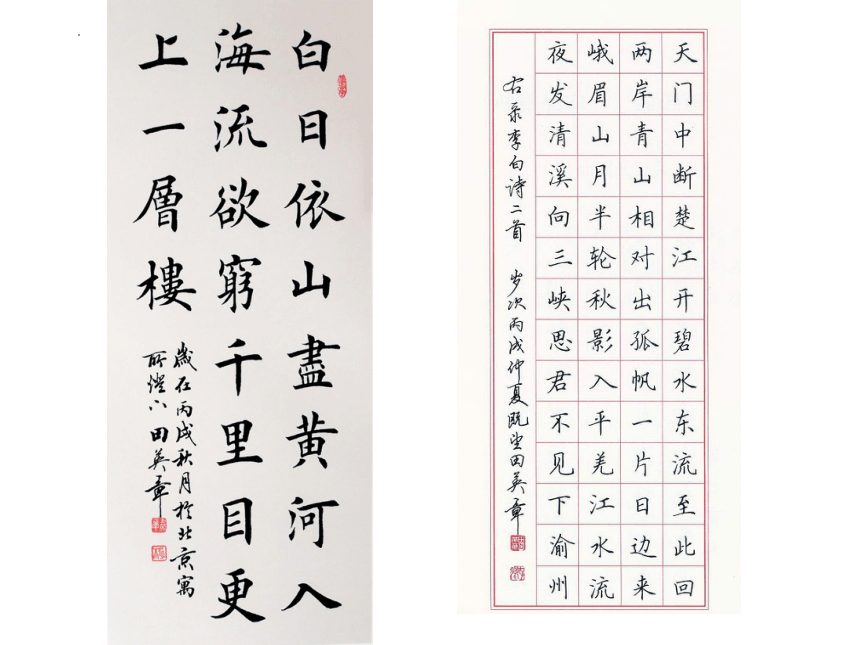 白日依山盡黄河入
海流欲窮千里目更
上一層樓
歲在丙戌秋月於北京寓
所燈下田英章
天门中断楚江开碧水东流至此回
两岸青山相对出孤帆一片日边来
峨眉山月半轮秋影入平羌江水流
夜发清溪向三峡思君不见下渝州
右录李白诗二首 岁次丙戌仲夏既望田英章